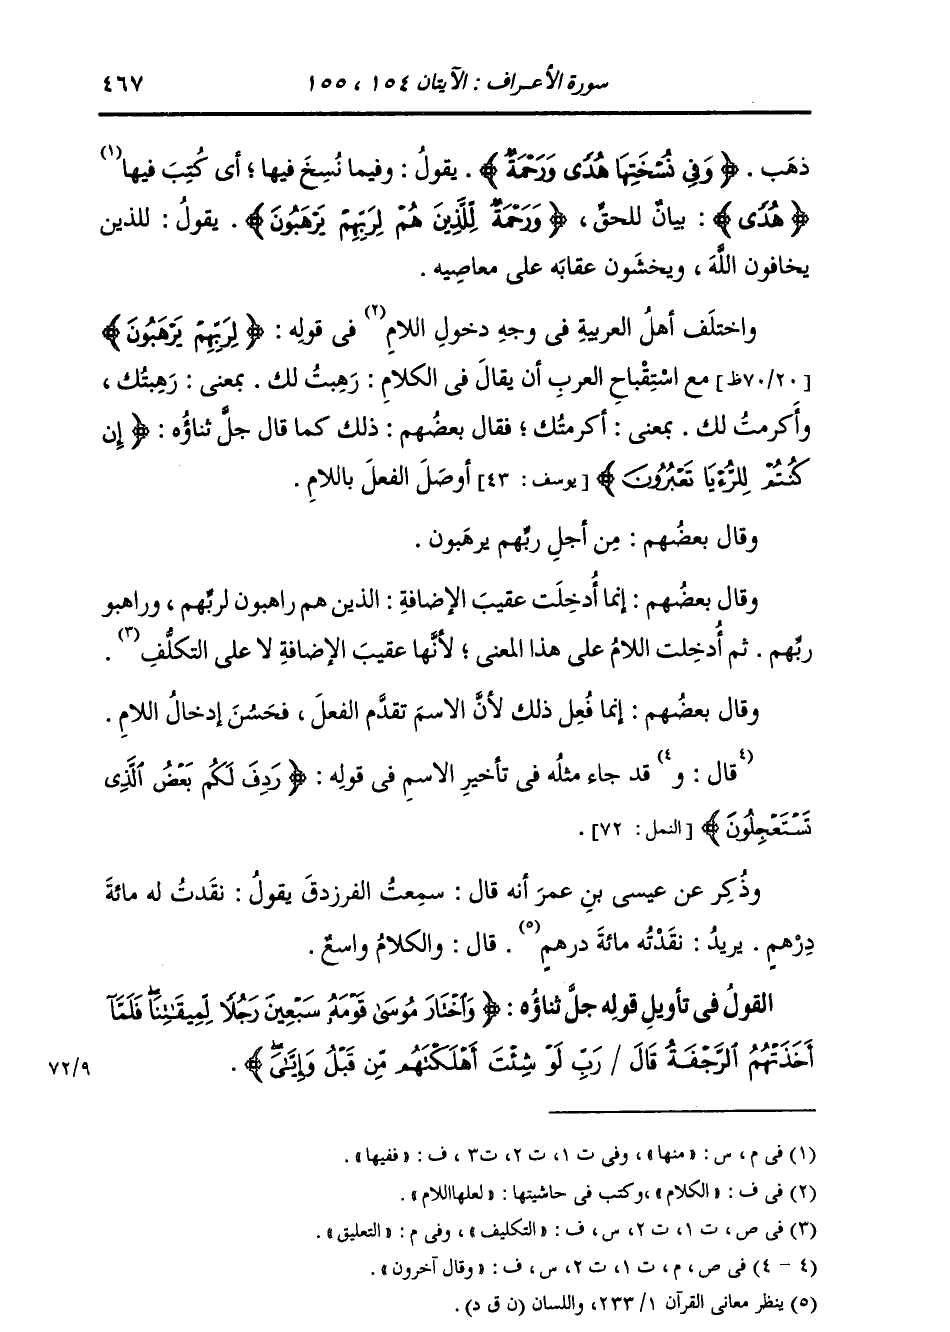 سورة الأعراف : الآيتان ١٥٤ ، ١٥٥ ٤٦٧
ذهَب . ﴿ وَفِى نُسْخَتِهَا هُدًى وَرَحْمَةٌ ﴾ . يقولُ : وفيما نُسِخَ فيها ؛ أى كُتِبَ فيها(١)
﴿ هُدًى ﴾ : بيانٌ للحقِّ ، ﴿ وَرَحْمَةٌ لِّلَّذِينَ هُمْ لِرَبِّهِمْ يَرْهَبُونَ ﴾ . يقولُ : للذين
يخافون اللَّهَ ، ويخشَون عقابَه على معاصِيه .
واختلَف أهلُ العربيةِ فى وجهِ دخولِ اللامِ(٢) فى قولِه : ﴿ لِرَبِّهِمْ يَرْهَبُونَ ﴾
[٧٠/٢٠ظ] مع اسْتِقْباحِ العربِ أن يقالَ فى الكلامِ : رَهِبتُ لك . بمعنى : رَهِبتُك ،
وأَكرمتُ لك . بمعنى : أكرمتُك ؛ فقال بعضُهم : ذلك كما قال جلَّ ثناؤُه : ﴿ إِن
كُنتُمْ لِلرُّءْيَا تَعْبُرُونَ ﴾ [يوسف : ٤٣] أوصَلَ الفعلَ باللامِ .
وقال بعضُهم : مِن أجلِ ربِّهم يرهَبون .
وقال بعضُهم : إنما أُدخِلَت عقيبَ الإضافةِ : الذين هم راهبون لربِّهم ، وراهبو
ربِّهم . ثم أُدخِلت اللامُ على هذا المعنى ؛ لأنَّها عقيبَ الإضافةِ لا على التكلُّفِ(٣) .
وقال بعضُهم : إنما فُعِل ذلك لأنَّ الاسمَ تقدَّم الفعلَ ، فحَسُنَ إدخالُ اللامِ .
(٤قال : و٤) قد جاء مثلُه فى تأخيرِ الاسمِ فى قولِه : ﴿ رَدِفَ لَكُم بَعْضُ ٱلَّذِى
تَسْتَعْجِلُونَ ﴾ [النمل : ٧٢] .
وذُكِر عن عيسى بنِ عمرَ أنه قال : سمِعتُ الفرزدقَ يقولُ : نقَدتُ له مائةَ
دِرْهمٍ . يريدُ : نقَدْتُه مائةَ درهمٍ(٥) . قال : والكلامُ واسعٌ .
القولُ فى تأويلِ قولِه جلَّ ثناؤُه : ﴿ وَٱخْتَارَ مُوسَىٰ قَوْمَهُۥ سَبْعِينَ رَجُلًا لِّمِيقَٰتِنَاۖ فَلَمَّآ
أَخَذَتْهُمُ ٱلرَّجْفَةُ قَالَ / رَبِّ لَوْ شِئْتَ أَهْلَكْتَهُم مِّن قَبْلُ وَإِيَّٰىَۖ ﴾ . ٧٢/٩
(١) فى م ، س : « منها » ، وفى ت ١، ت ٢، ت٣ ، ف : « ففيها » .
(٢) فى ف : « الكلام » ،وكتب فى حاشيتها : « لعلهااللام » .
(٣) فى ص ، ت ١، ت ٢، س ، ف : « التكليف » ، وفى م : « التعليق » .
(٤ - ٤) فى ص ، م ، ت ١، ت ٢، س ، ف : « وقال آخرون » .
(٥) ينظر معانى القرآن ١/ ٢٣٣، واللسان (ن ق د) .